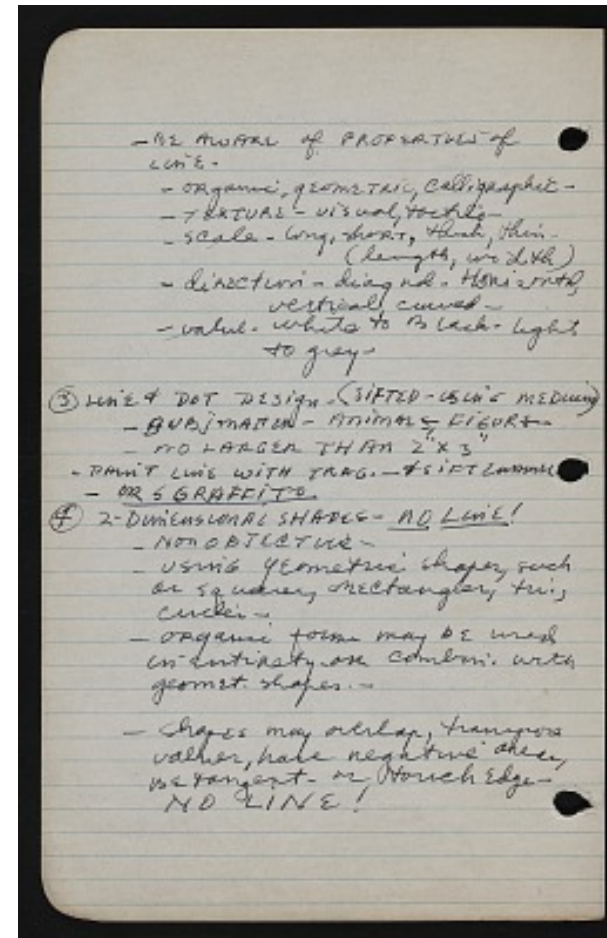 - BE AWARE of PROPERTIES of
LINE -
- organic, geometric, calligraphic -
- TEXTURE - visual, tactile -
- scale - long, short, thick, thin -
(length, width)
- direction - diagnol - Horizontal,
vertical, curved -
- value - white to Black - light
to grey -
③ LINE & DOT DESIGN - (SIFTED - USING MEDIUM)
- SUBJMATTER - ANIMALS, FIGURE -
- NO LARGER THAN 2" x 3"
- PAINT LINE WITH TRAG. - & SIFT ENAMEL
- OR SGRAFFITO
④ 2-DIMENSIONAL SHAPES - NO LINE!
- NON OBJECTIVE -
- USING geometric shapes, such
as squares, rectangles, tri.,
circles -
- organic forms may be used
in entirety or combin. with
geomet. shapes. -
- shapes may overlap, transpose
values, have negative areas,
be tangent - or touch Edge -
NO LINE!